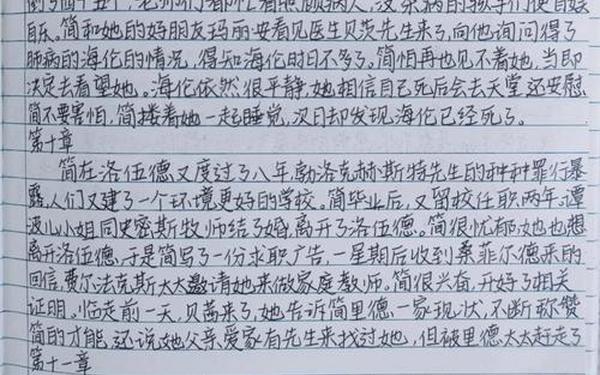 自乐。简和她的好朋友玛丽安看见医生贝茨先生来了,向他询问得了
肺病的海伦的情况,得知海伦时日不多了。简怕再也见不着她,当即
决定去看望她。海伦依然很平静,她相信自己死后会去天堂,还安慰
简不要害怕,简搂着她一起睡觉,次日却发现海伦已经死了。
第十章
简在洛伍德又度过了八年,勃洛克赫斯特先生的种种罪行暴
露,人们又建了一个环境更好的学校。简毕业后,又留校任职两年。谭
波儿小姐同史密斯牧师结了婚,离开了洛伍德。简很忧郁,她也想
离开洛伍德,于是简写了一份求职广告,一星期后收到桑菲尔德来的
回信,费尔法克斯太太邀请她来做家庭教师。简很兴奋,开好了相关
证明。临走前一天,贝茜来了,她告诉简里德一家现状,不断称赞
简的才能,还说她父亲爱家有先生来找过她,但被里德太太赶走了
第十一章